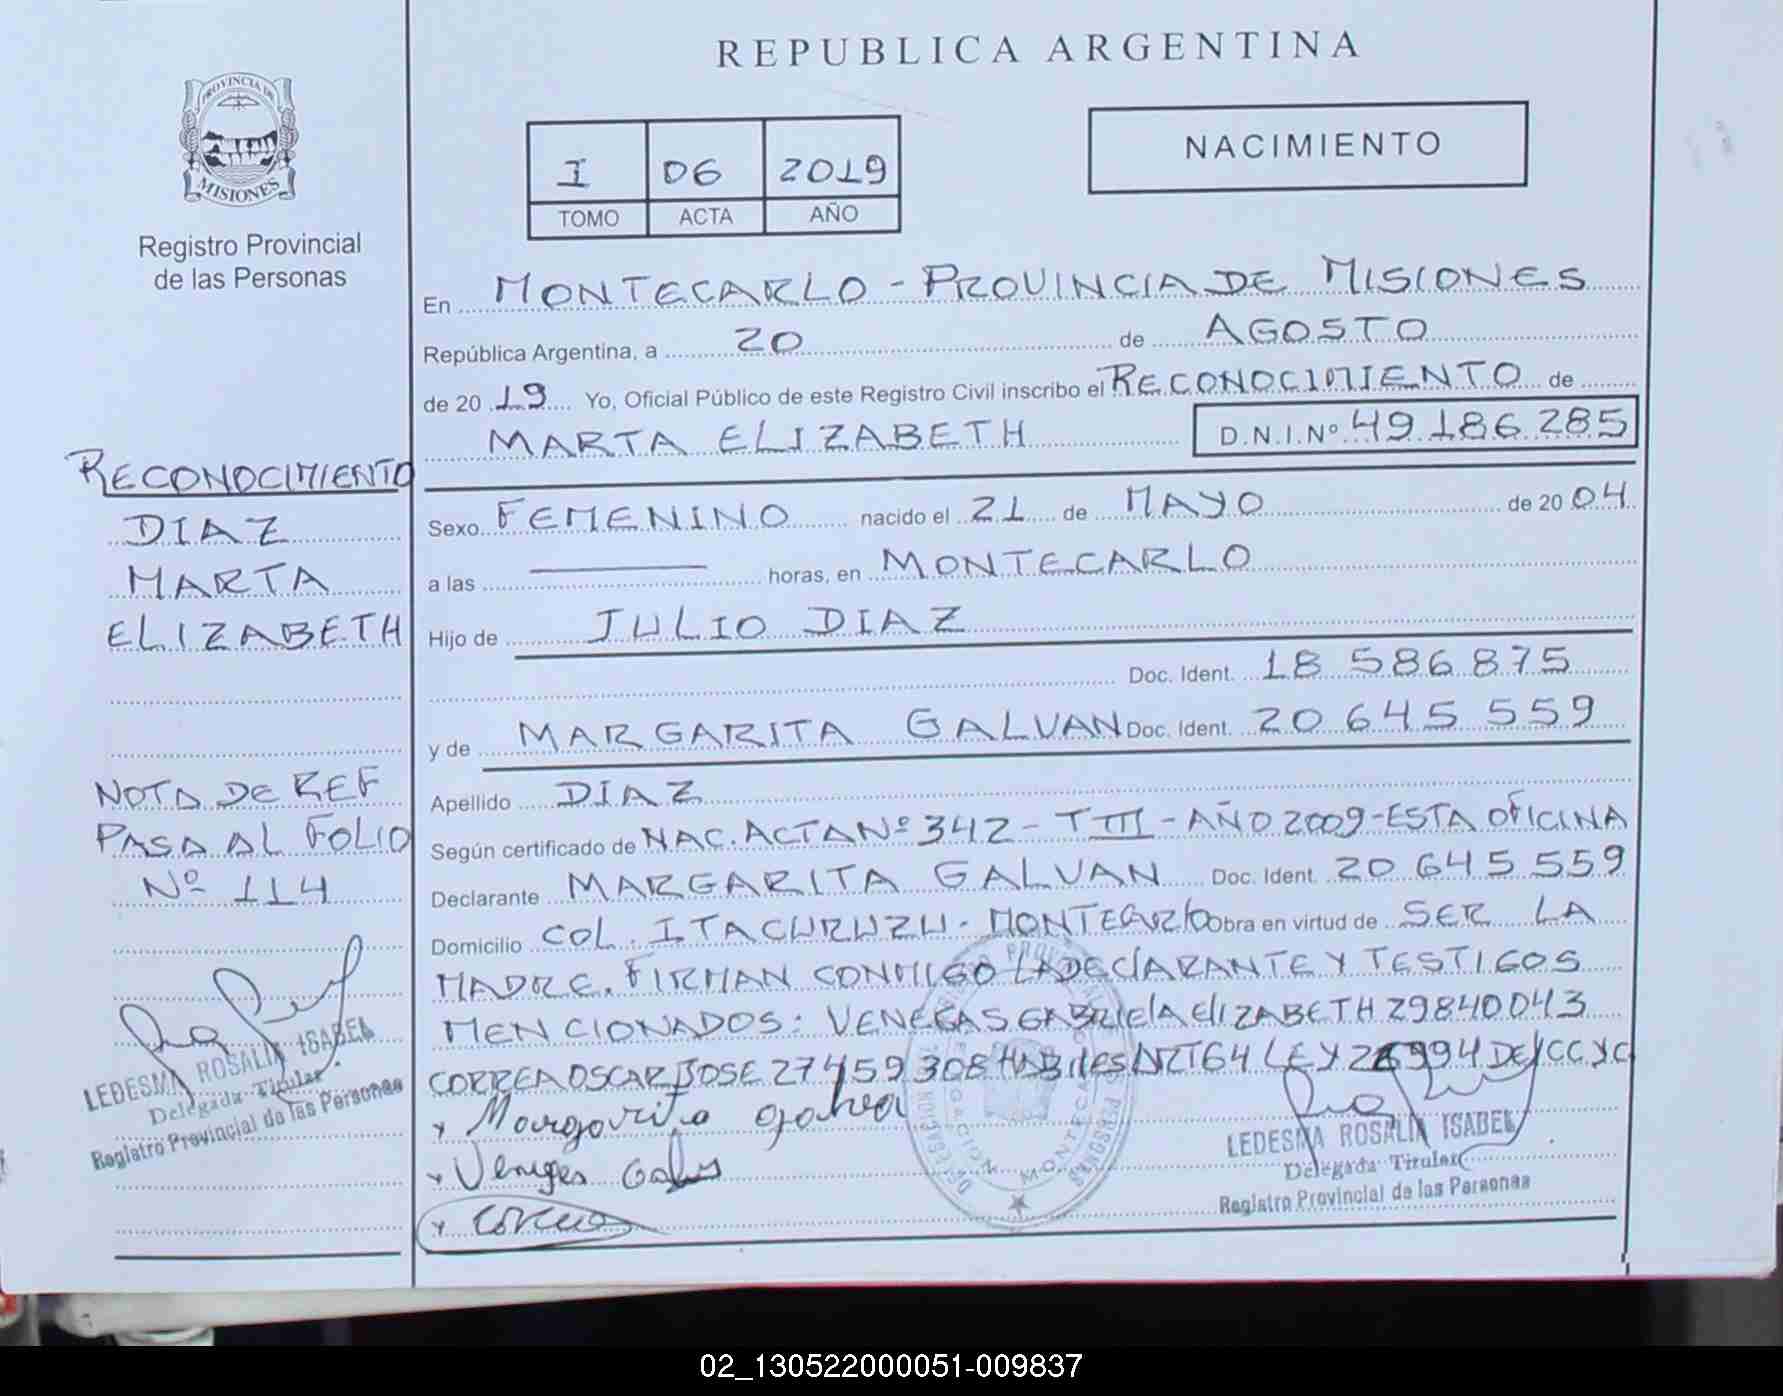 REPUBLICA ARGENTINA
PROVINCIA DE
MISIONES
Registro Provincial
de las Personas
I 06 2019
TOMO ACTA AÑO
NACIMIENTO
En MONTECARLO - PROVINCIA DE MISIONES
República Argentina, a 20 de AGOSTO
de 20 19 Yo, Oficial Público de este Registro Civil inscribo el RECONOCIMIENTO de
MARTA ELIZABETH D.N.I.Nº 49.186.285
Sexo FEMENINO nacido el 21 de MAYO de 20 04
a las — horas, en MONTECARLO
Hijo de JULIO DIAZ
Doc. Ident. 18 586.875
y de MARGARITA GALVAN Doc. Ident. 20 645 559
Apellido DIAZ
Según certificado de NAC. ACTA Nº 342 - T III - AÑO 2009 - ESTA OFICINA
Declarante MARGARITA GALVAN Doc. Ident. 20 645 559
Domicilio COL. ITACURUZU - MONTECARLO Obra en virtud de SER LA
MADRE. FIRMAN CONMIGO LA DECLARANTE Y TESTIGOS
MENCIONADOS: VENEGAS GABRIELA ELIZABETH 29840043
CORREA OSCAR JOSE 27459308 HABILES ART 64 LEY 26994 DEL C.C.Y.C
x Margarita galvan
x Venegas Gabs
x Correa
RECONOCIMIENTO
DIAZ
MARTA
ELIZABETH
NOTA DE REF
PASA AL FOLIO
Nº 114
LEDESMA ROSALIA ISABEL
Delegada Titular
Registro Provincial de las Personas
MONTECARLO
LEDESMA ROSALIA ISABEL
Delegada Titular
Registro Provincial de las Personas
02_130522000051-009837